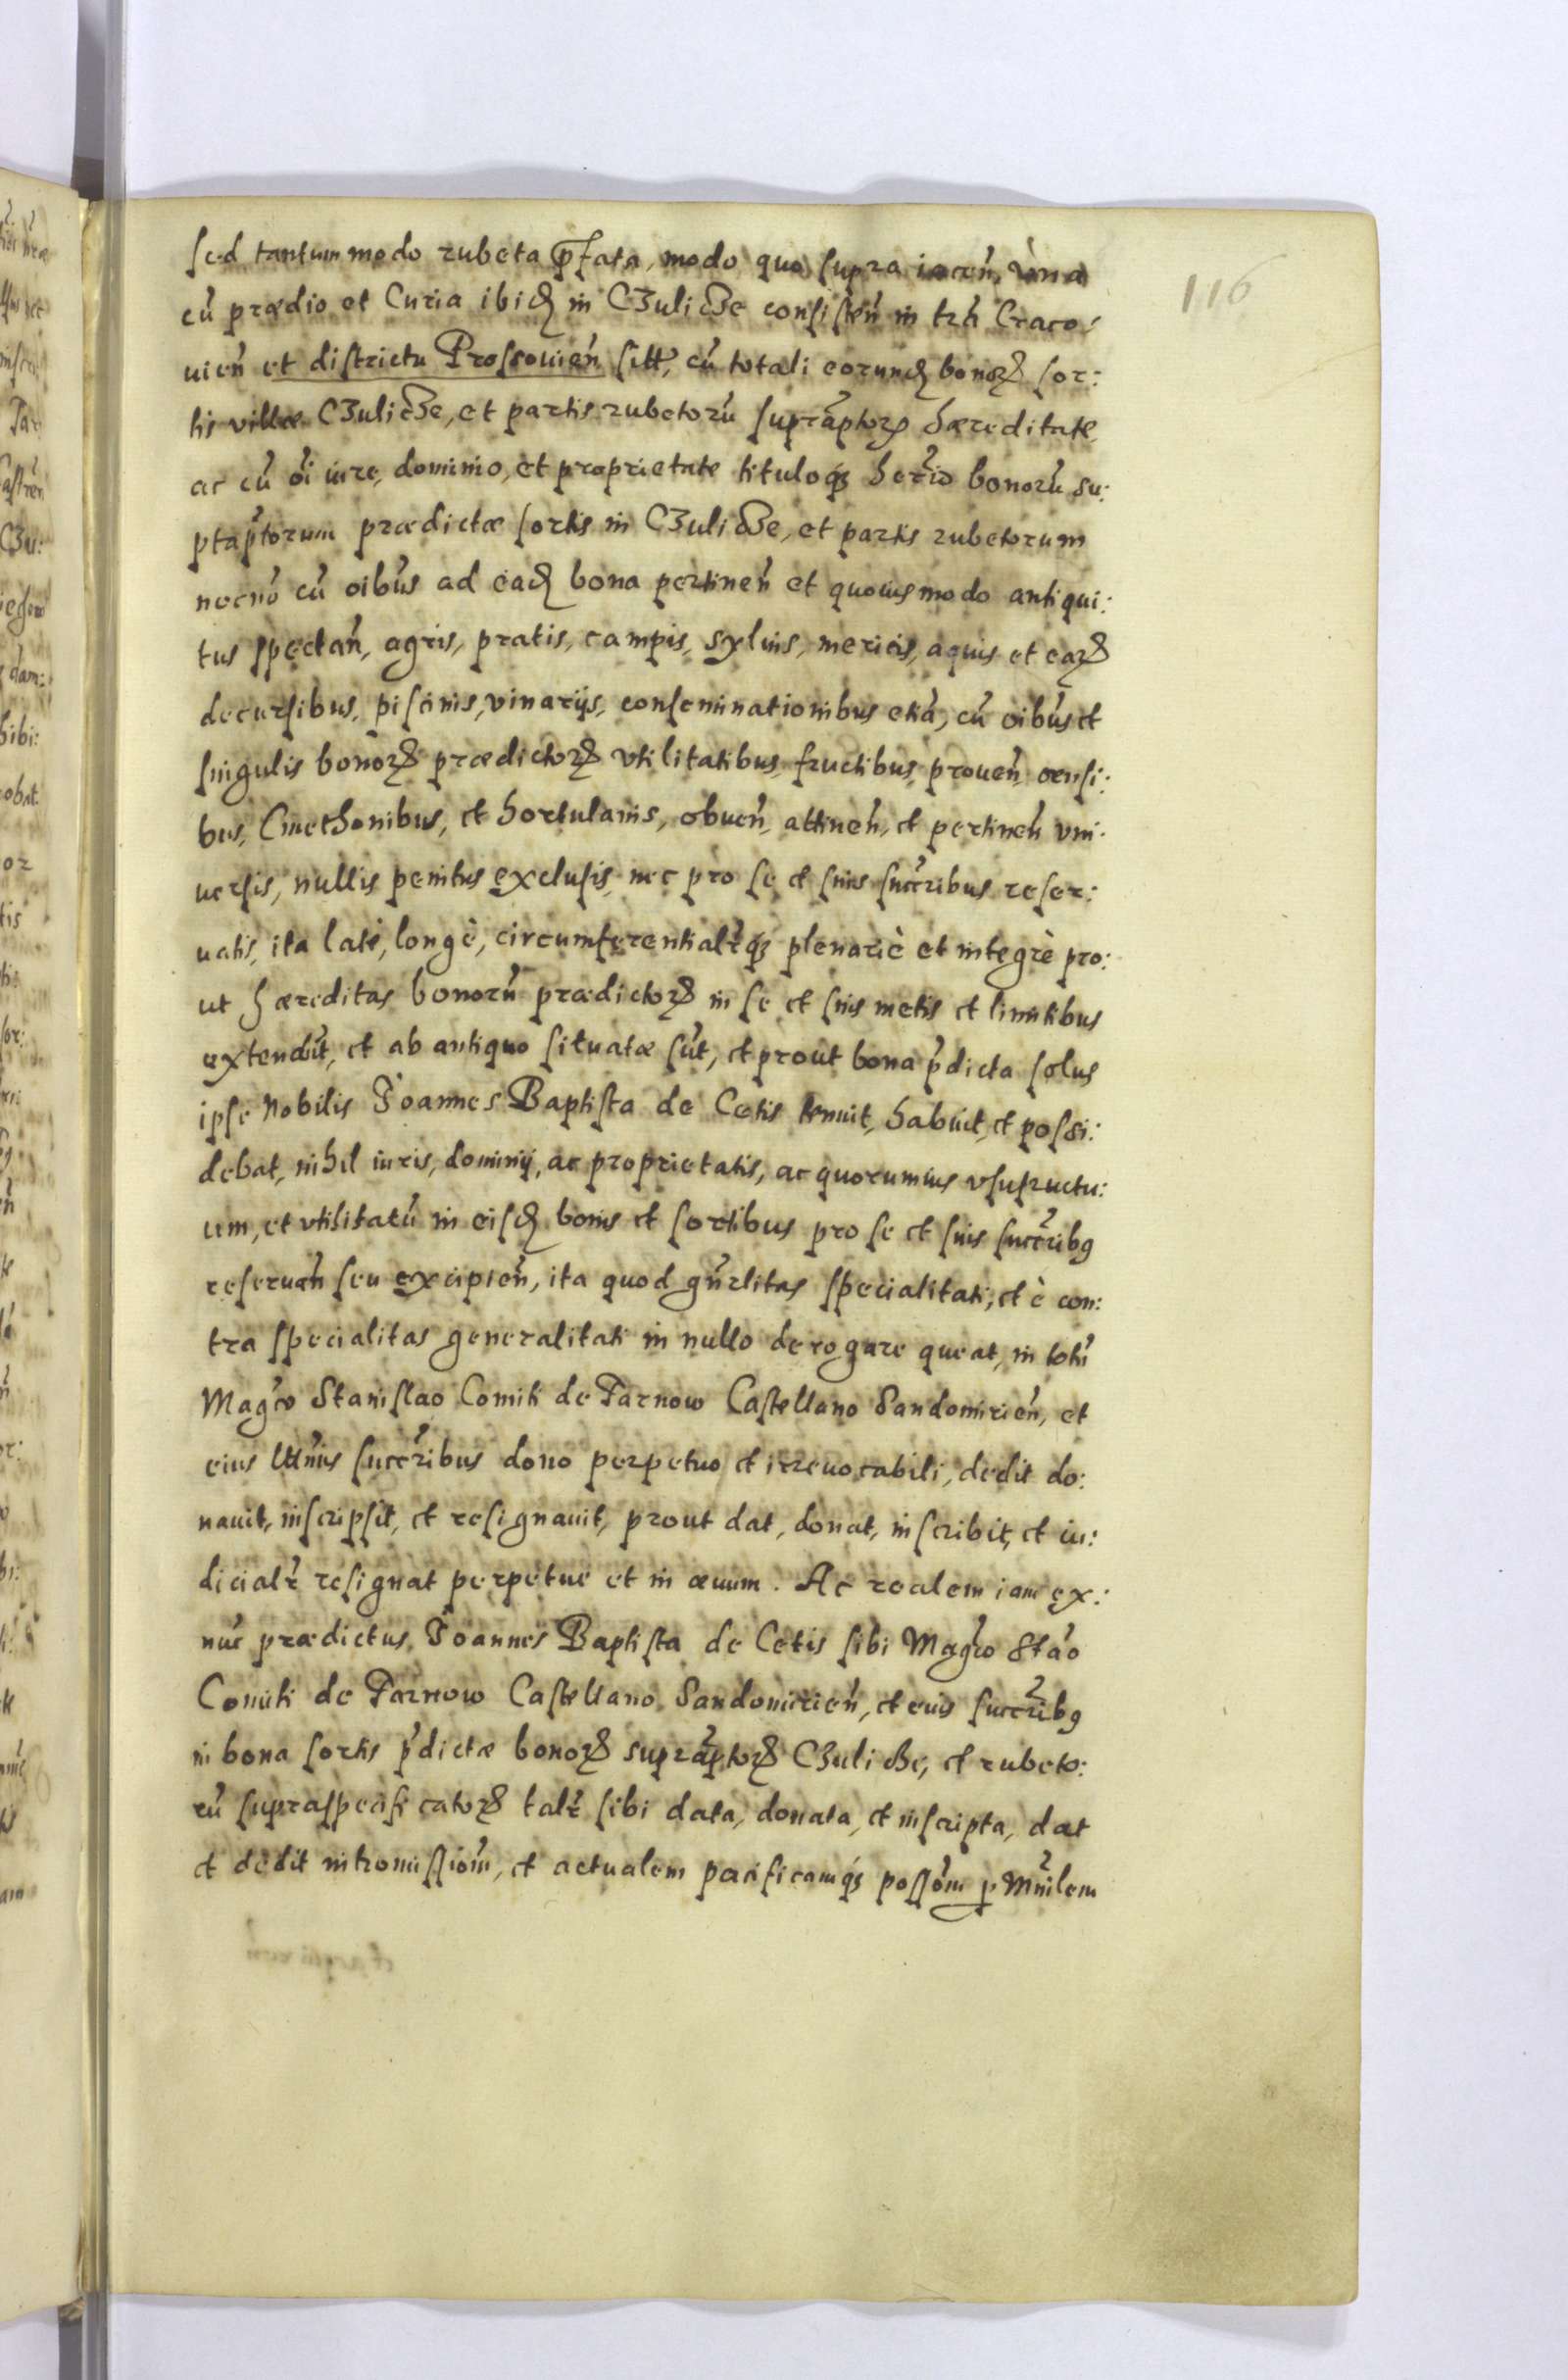 116
sed tantummodo rubeta p̃fata, modo quo supra iacen̄, vna
cū prædio et Curia ibid. in Czulicze consisten̄ in trā Craco:
uien̄ et districtu Prossouien̄ sitt, cū totali eorund. bonor. sor:
tis villæ Czulicze, et partis rubetorū suprãptor. hæreditate
ac cū oī iure, dominio, et proprietate tituloq3 hærio bonorū su:
ptaptorum prædictæ sortis in Czulicze, et partis rubetorum
necnō cū oibus ad ead. bona pertinen̄ et quouismodo antiqui:
tus spectan̄, agris, pratis, campis, syluis, mericis, aquis et ear.
decursibus, piscinis, vinarijs, conseminationibus etiā, cū oibus et
singulis bonor. prædictor. vtilitatibus, fructibus, prouen̄, censi:
bus, Cmethonibus, et hortulanis, obuen̄, attinen̄, et pertinen̄ vni:
uersis, nullis penitus exclusis, nec pro se et suis succribus reser:
uatis, ita latè, longè, circumferentialrq3 plenariè et integrè pro:
ut hæreditas bonorū prædictor. in se et suis metis et limitibus
extendūt, et ab antiquo situatæ sūt, et prout bona p̄dicta solus
ipse Nobilis Joannes Baptista de Cetis tenuit, habuit, et possi:
debat, nihil iuris, dominij, ac proprietatis, ac quorumuis vsufructu:
um, et vtilitatū in eisd. bonis et sortibus pro se et suis succribg
reseruan̄ seu excipien̄, ita quod gn̄rlitas specialitati, et è con:
tra specialitas generalitati in nullo derogare queat, in totū
Magco Stanislao Comiti de Tarnow Castellano Sandomirien̄, et
eius succribus dono perpetuo et irreuocabili, dedit do:
nauit, inscripsit, et resignauit, prout dat, donat, inscribit, et iu:
dicialr resignat perpetue et in æuum. Ac realem iam ex:
nūc prædictus Joannes Baptista de Cetis sibi Magco Stāo
Comiti de Tarnow Castellano Sandomirien̄, et eius succribg
in bona sortis p̄dictæ bonor. suprãptor. Czulicze, et rubeto:
rū supraspecificator. talr sibi data, donata, et inscripta, dat
et dedit intromissiom̄, et actualem pacificamq3 possōm p Mn̄ilem